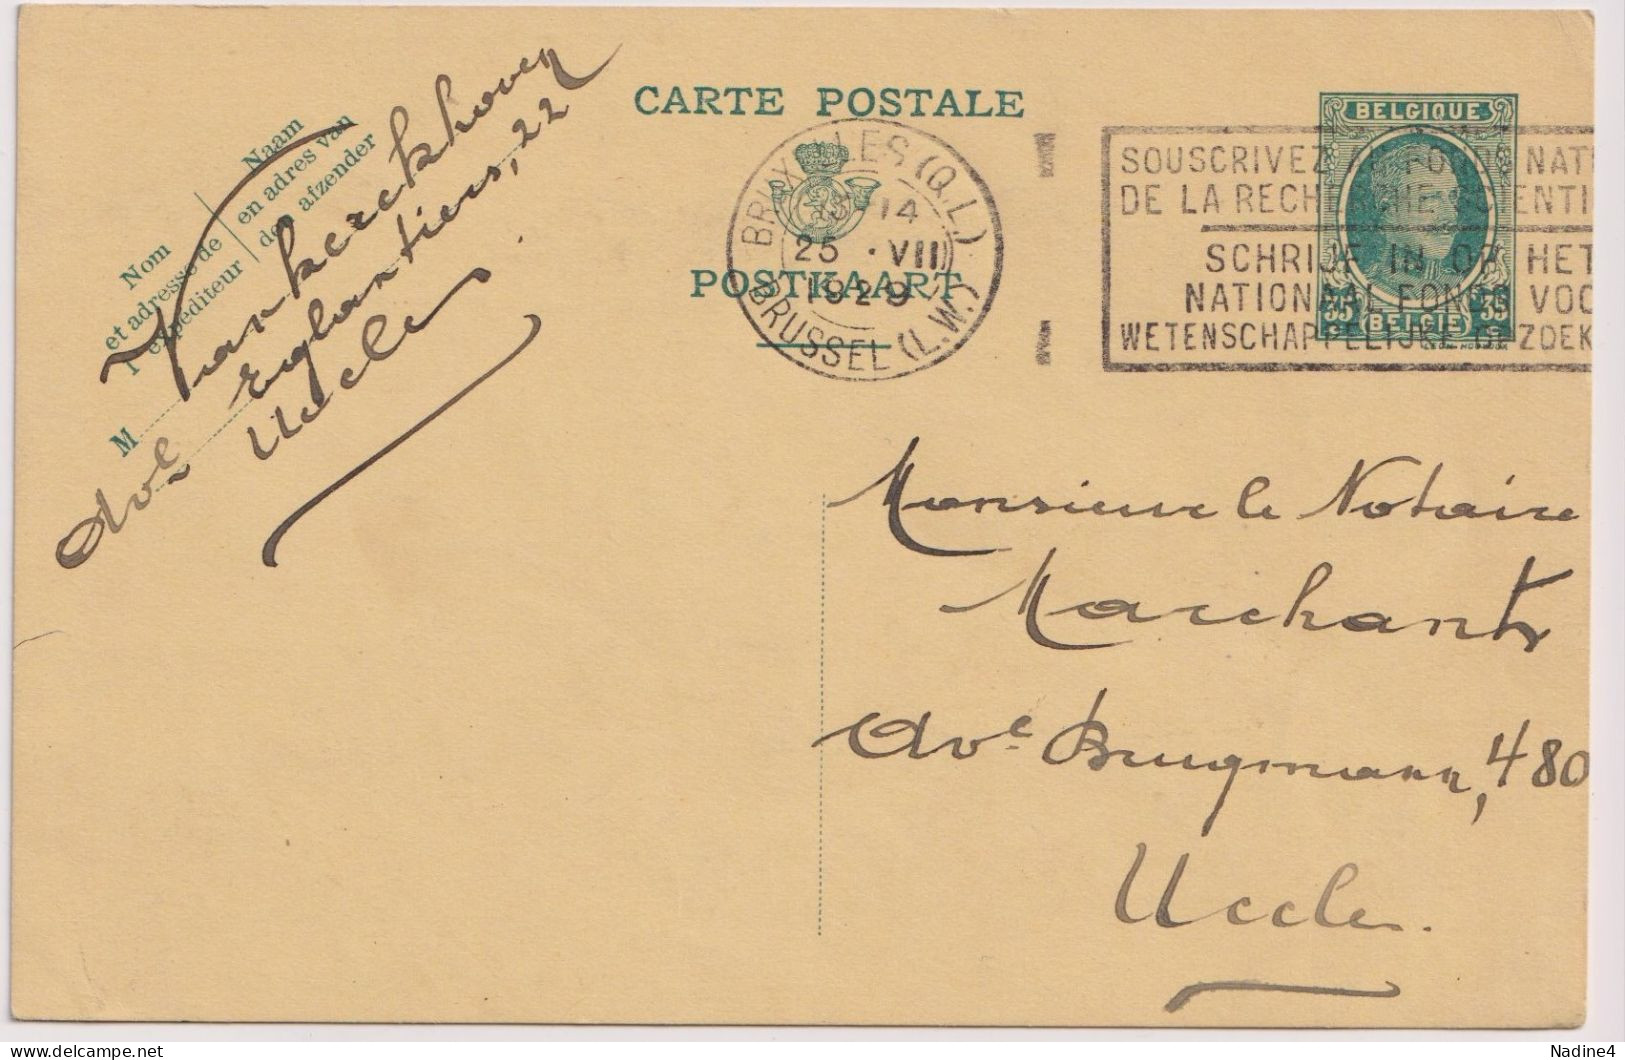 CARTE POSTALE
POSTKAART
Nom
et adresse de
l'expéditeur
Naam
en adres van
de afzender
M
Vankerckhoven
Ave Englantiers, 22
Uccle
BRUXELLES (Q.L.)
13-14
25 · VII
1929
BRUSSEL (L.W.)
SOUSCRIVEZ AU FONDS NATI
DE LA RECHERCHE SCIENTI
SCHRIJF IN OP HET
NATIONAAL FONDS VOO
WETENSCHAPPELIJKE OPZOEK
BELGIQUE
35 BELGIË 35
Monsieur le Notaire
Marchant
Ave Brugmann, 480
Uccle.
Nadine4